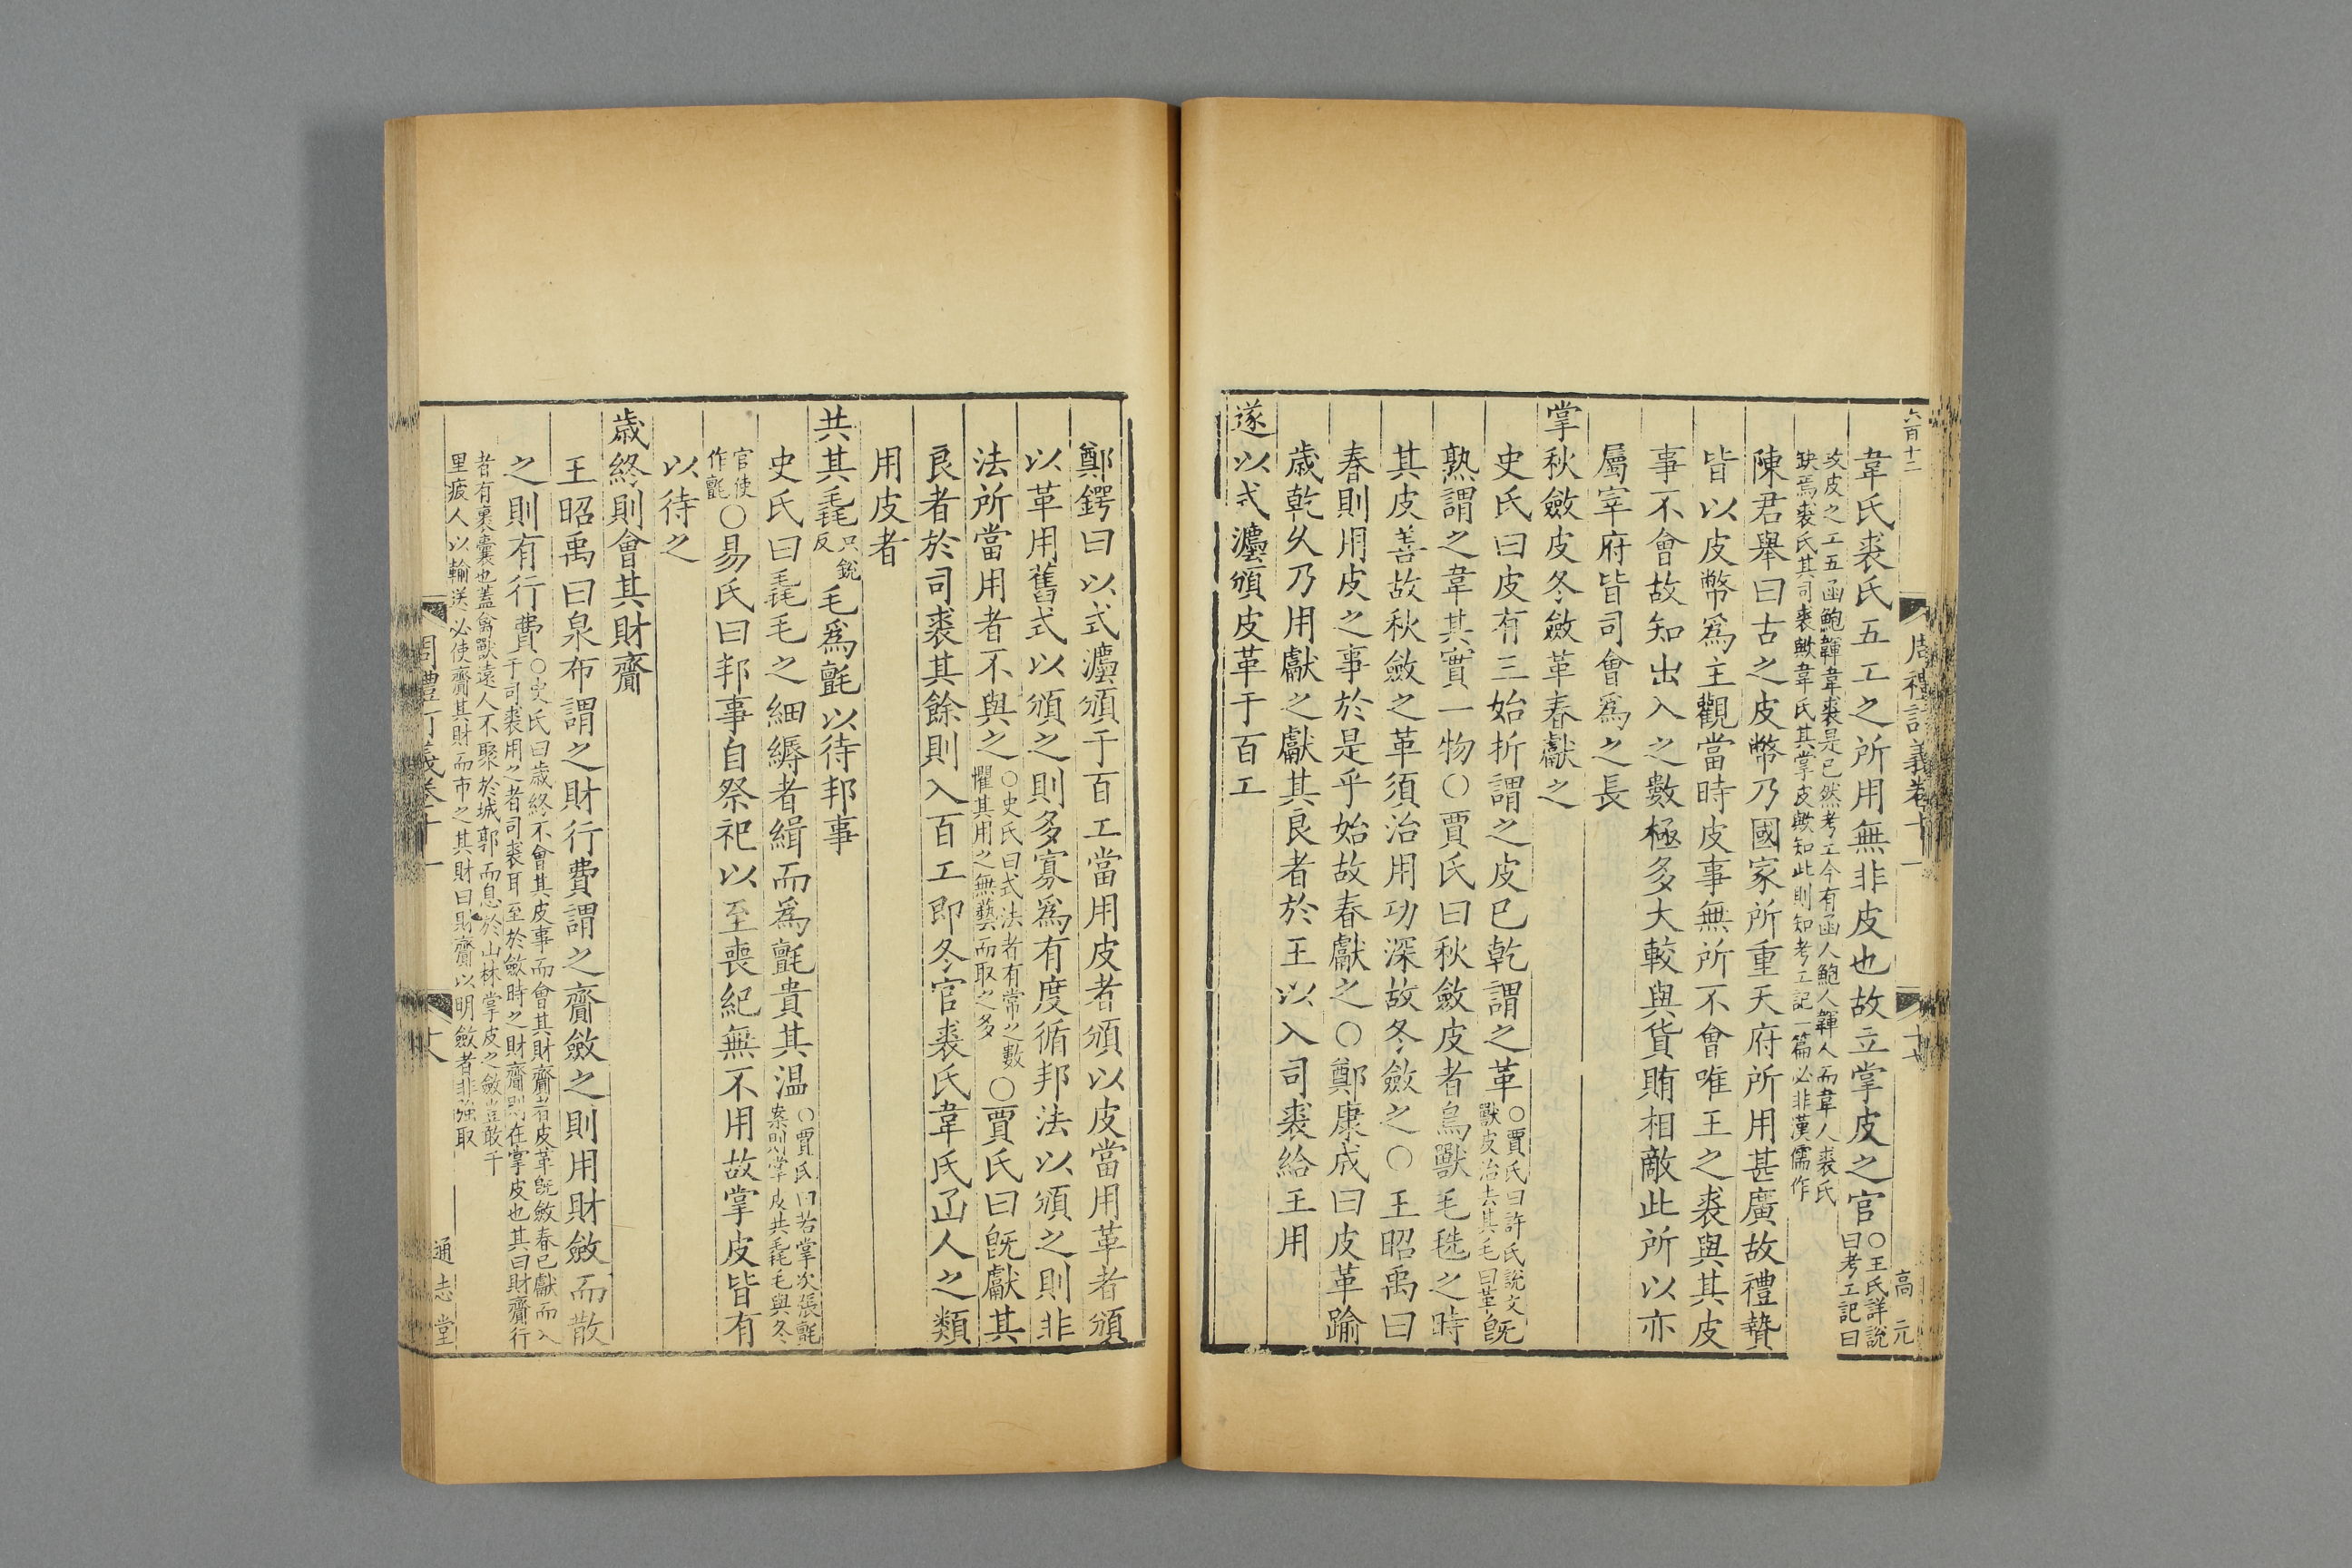 六百十二
周禮訂義卷十一
十七
高元
韋氏裘氏五工之所用無非皮也故立掌皮之官〇王氏詳說曰考工記曰
攻皮之工五函鮑韗韋裘是已然考工今有函人鮑人韗人而韋人裘氏
缺焉裘氏其司裘歟韋氏其掌皮歟知此則知考工記一篇必非漢儒作
陳君舉曰古之皮幣乃國家所重天府所用甚廣故禮贄
皆以皮幣爲主觀當時皮事無所不會唯王之裘與其皮
事不會故知出入之數極多大較與貨賄相敵此所以亦
屬宰府皆司會爲之長
掌秋斂皮冬斂革春獻之
史氏曰皮有三始折謂之皮已乾謂之革〇賈氏曰許氏說文旣獸皮治去其毛曰革旣
熟謂之韋其實一物〇賈氏曰秋斂皮者鳥獸毛毨之時
其皮善故秋斂之革須治用功深故冬斂之〇王昭禹曰
春則用皮之事於是乎始故春獻之〇鄭康成曰皮革踰
歲乾乆乃用獻之獻其良者於王以入司裘給王用
遂以式灋頒皮革于百工
鄭鍔曰以式灋頒于百工當用皮者頒以皮當用革者頒
以革用舊式以頒之則多寡爲有度循邦法以頒之則非
法所當用者不與之〇史氏曰式法者有常之數懼其用之無藝而取之多〇賈氏曰旣獻其
良者於司裘其餘則入百工即冬官裘氏韋氏函人之類
用皮者
共其毳只銳反毛爲氊以待邦事
史氏曰毳毛之細縟者緝而爲氊貴其温〇賈氏曰若掌次張氊案則掌皮共毳毛與冬
官使作氊〇易氏曰邦事自祭祀以至喪紀無不用故掌皮皆有
以待之
歲終則會其財齎
王昭禹曰泉布謂之財行費謂之齎斂之則用財斂而散
之則有行費〇史氏曰歲終不會其皮事而會其財齎者皮革旣斂春已獻而入
于司裘用之者司裘耳至於斂時之財齎則在掌皮也其曰財齎行
者有裹囊也蓋禽獸遠人不聚於城郭而息於山林掌皮之斂豈敢千
里疲人以輸送必使齎其財而市之其財曰財齎以明斂者非強取
周禮訂義卷十一
十八
通志堂